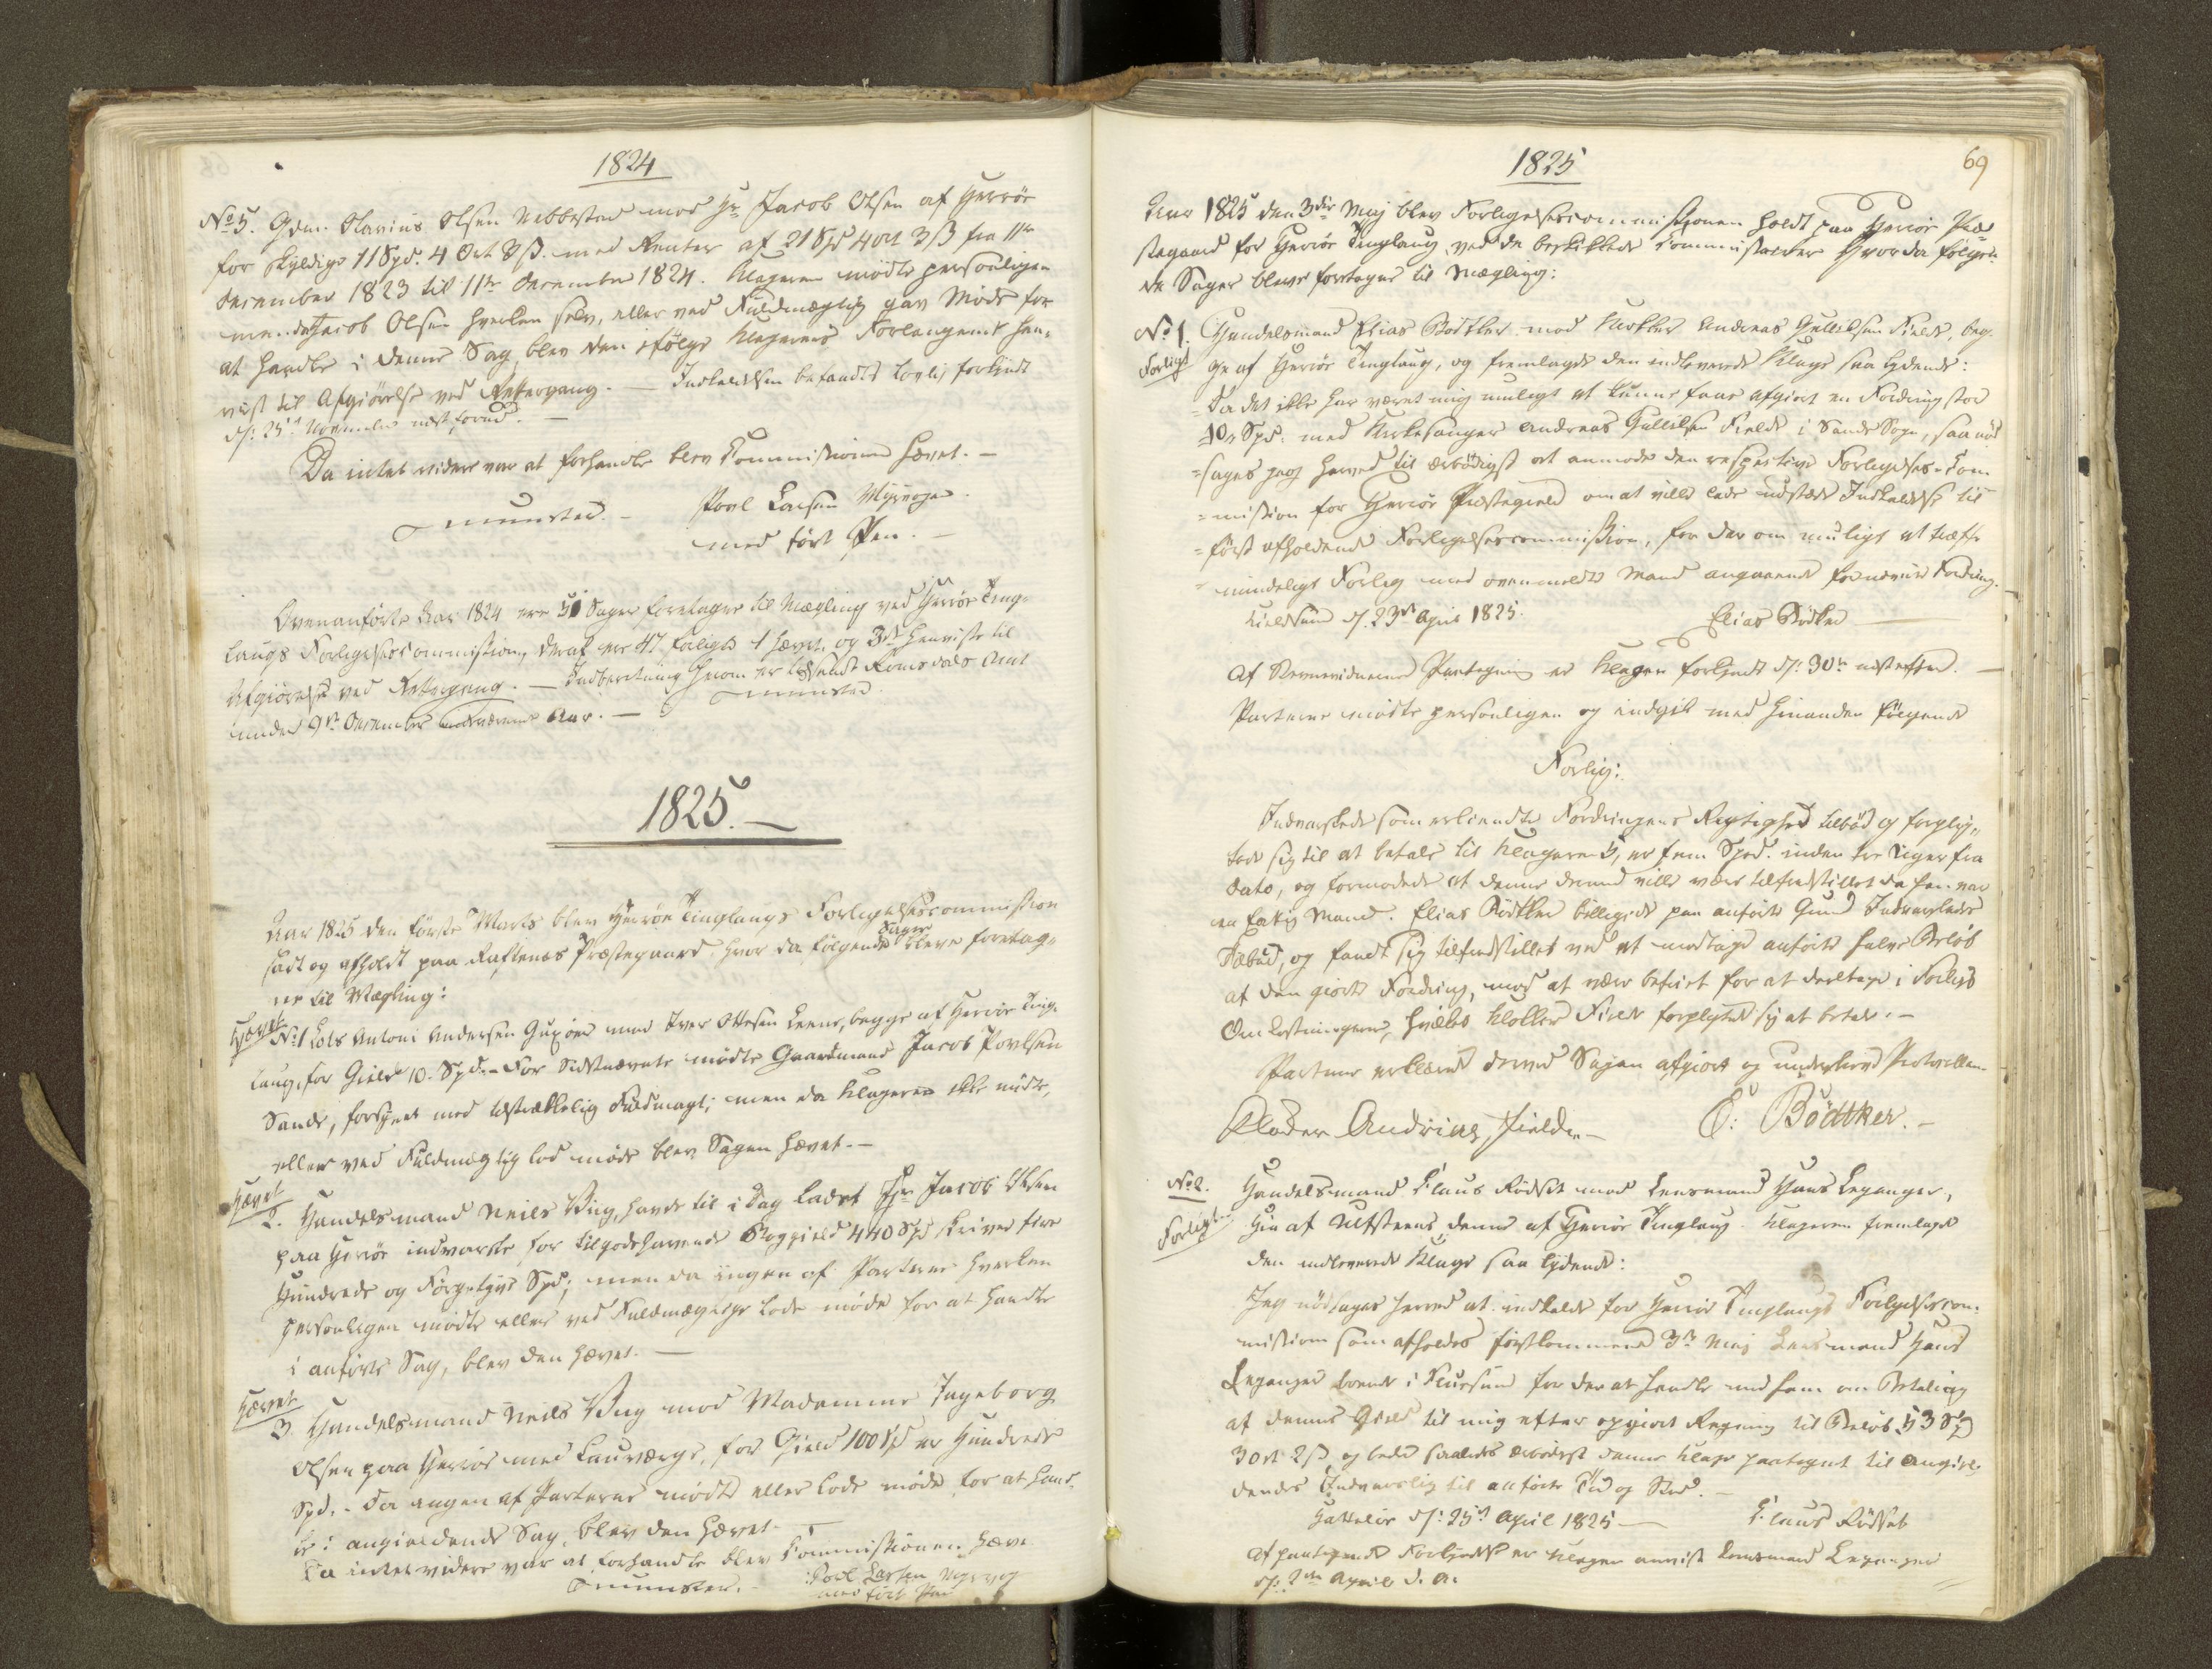 1824
No 5. Gdm. Olavius Olsen Nebbestad mod Hr Jacob Olsen af Herröe
for skyldige 11 Spd. 4 Ort 8 ß. med Renter af 21 Spd 4 ort 3 ß fra 11te
December 1823 til 11te December 1824. Klageren mödte personligen
men da Jacob Olsen hverken selv, eller ved Fuldmægtig gav Möde for
at handle i denne Sag, blev den ifölge Klagerens Forlangende hen-
viist til Afgiörelse ved Rettergang. – Indkaldelsen befandtes lovlig forkyndt
d: 25de November nestforud. –
Da intet videre var at forhandle blev Commissionen hævet. –
Povl Larsen Myrvogn.
med fört Pen. –
Ovenanförte Aar 1824 ere Sager foretagne til Mægling ved Herröe Ting-
laugs Forligelsescommission, deraf ere 47 forligte 1 hævet og 3de henviste til
Afgiörelse ved Rettergang. – Indberetning herom er tilsendt Romsdals Amt
under 9de December Aar. –
1825. –
Aar 1825 den förste Marts blev Herröe Tinglaugs Forligelsescommission
sadt og afholdt paa Præstegaard, hvor da fölgende Sager bleve foretag-
ne til Mægling:
Hævet No 1 Lods Antoni Andersen mod Iver Ottesen Leene, begge af Herröe Ting-
laug, for Gield 10 Spd. – For Sidstnævnte mödte Gaardmand Jacob Povlsen
Sande, forsynet med tilstrækkelig Fuldmagt; men da Klageren ikke mödte,
eller ved Fuldmægtig lod möde blev Sagen hævet. –
Hævet 2. Handelsmand Neils Bug, havde til i Dag ladet Hr Jacob Olsen
paa Herröe indvarsle for tilgodehavende Boggield 440 Spd skriver fire
Hundrede og Förgetyve Spd; men da ingen af Parterne hverken
personligen mödte eller ved Fuldmægtige lode möde for at handle
i anförte Sag, blev den hævet. –
Hævet 3. Handelsmand Neils Bug mod Madamme Ingeborg
Olsen paa Herröe med Laugværge, for Gield 100 Spd er Hundrede
Spd. – Da ingen af Parterne mödte eller lode möde for at hand-
le i angieldende Sag, blev den hævet. –
Da intet videre var at forhandle blev Commissionen hæve
Povl Larsen Myrvog
med fört Pen
1825
69
Aar 1825 den 3die Maj blev Forligelsescommissionen holdt paa Herröe Præ-
stegaard for Herröe Tinglaug ved de beskikkede Commissairer hvorda fölgen-
de Sager bleve foretagne til Mægling:
No 1. Handelsmand Elias Bödtker mod Klokker Andreas Gullichsen Fielde, beg-
Forligt ge af Herröe Tinglaug, og fremlagde den indleverede Klage saa lydende:
= Da det ikke har været mig muligt at kunne faae afgiort en Fordring stor
10 Spd: med Kirkesanger Andreas Gullichsen Fielde i Sande Sogn, saa nöd-
= sages jeg herved til ærbödigst at anmode den respective Forligelses-Com-
= mission for Herröe Præstegield om at ville lade udstæde Indkaldelse til
= först afholdende Forligelsescommission, for der om muligt at træffe
= mindeligt Forlig med ovenmeldte Mand angaaende fornævnte Fordring.
d. 23de April 1825.
Elias Bödtker
Af Stevnevidnernes Paategning er Klagen forkyndt d: 30te nestefter. –
Parterne mödte personligen og indgik med hinanden fölgende
Forlig:
Indvarslede som erkiendte Fordringens Rigtighed tilböd og forplig-
tede sig til at betale til Klageren 5, er fem Spd. inden tre Uger fra
Dato, og formodede at denne dermed ville være tilfredsstillet da han var
en fattig Mand. Elias Bödtker billigede paa anförte Grund Indvarsledes
Tilbud, og fandt sig tilfredsstillet ved at modtage anförte halve Belöb
af den giorte Fordring, mod at være befriet for at deeltage i Forligs
Omkostningerne, hvilke Klokker Fielde forpligtede sig at betale. –
Parterne erklærede derved Sagen afgiort og underskrev Protocollen.
Kloker Andreias Fielde. –
E: Bödtker. –
No 2. Handelsmand Claus Rödset mod Lensmand Hans Leganger,
Forligt hiin af Ulfsteens, denne af Herröe Tinglaug. Klageren fremlagde
den indleverede Klage saa lydende:
Jeg nödsages herved at indkalde for Herröe Tinglaugs Forligelsescom-
mission som afholdes förstkommende 3de Maj Lensmand Hans
Leganger boende i Flaursund for der at handle med ham om Betaling
af dennes Gield til mig efter opgiort Regning til Belöb 53 Spd
3 Ort 2 ß, og beder saaledes ærbödigst denne Klage paategnet til angiel-
dendes Indvarsling til anförte Tid og Sted. –
Hatteloe d: 25de April 1825 –
Claus Rödset
Af paategnede Forkyndelse er Klagen anviist Lensmand Leganger
April d. A.